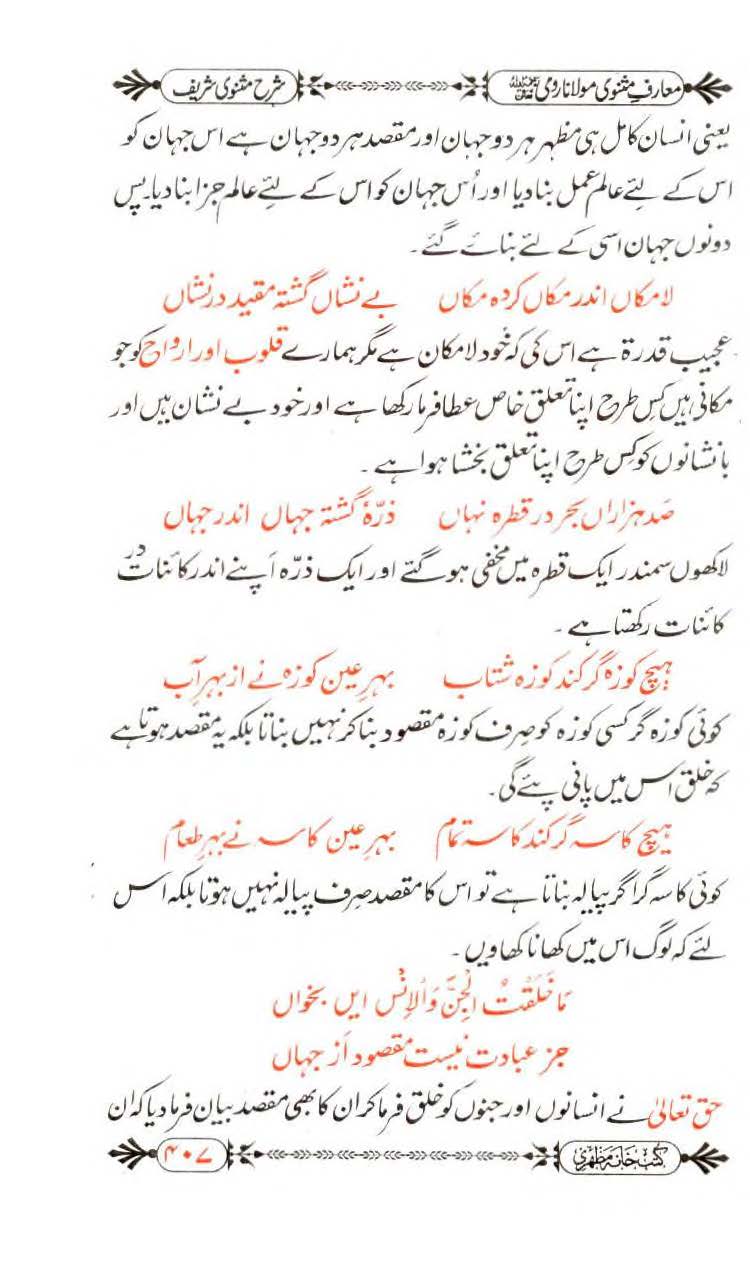 معارف مثنوی مولانا رومی رحمۃ اللہ علیہ شرح مثنوی شریف
یعنی انسان کامل ہی مظہر ہر دو جہان اور مقصد ہر دو جہان ہے اس جہان کو
اس کے لئے عالمِ عمل بنا دیا اور اُس جہان کو اس کے لئے عالمِ جزا بنا دیا۔ پس
دونوں جہان اسی کے لئے بنائے گئے۔
لامکاں اندر مکاں کردہ مکاں بے نشاں گشتہ مقید در نشاں
عجیب قدرۃ ہے اس کی کہ خود لامکان ہے مگر ہمارے قلوب اور ارواح کو جو
مکانی ہیں کس طرح اپنا تعلق خاص عطا فرما رکھا ہے اور خود بے نشان ہیں اور
بانشانوں کو کس طرح اپنا تعلق بخشا ہوا ہے۔
صَد ہزاراں بحر در قطرہ نہاں ذرّۂ گشتہ جہاں اندر جہاں
لاکھوں سمندر ایک قطرہ میں مخفی ہو گئے اور ایک ذرّہ اَپنے اندر کائنات در
کائنات رکھتا ہے۔
ہیچ کوزہ گر کند کوزہ شتاب بہرِ عین کوزہ نے از بہرِ آب
کوئی کوزہ گر کسی کوزہ کو صِرف کوزہ مقصود بنا کر نہیں بناتا بلکہ یہ مقصد ہوتا ہے
کہ خلق اس میں پانی پئے گی۔
ہیچ کاسہ گر کند کاسہ تمام بہرِ عین کاسہ نے بہرِ طعام
کوئی کاسہ گر اگر پیالہ بناتا ہے تو اس کا مقصد صِرف پیالہ نہیں ہوتا بلکہ اس
لئے کہ لوگ اس میں کھانا کھاویں۔
مَا خَلَقْتُ الْجِنَّ وَالْاِنْسَ ایں بخواں
جز عبادت نیست مقصود اَز جہاں
حق تعالیٰ نے انسانوں اور جنوں کو خلق فرما کر ان کا بھی مقصد بیان فرما دیا کہ ان
کتب خانہ مظہری ۴۰۷